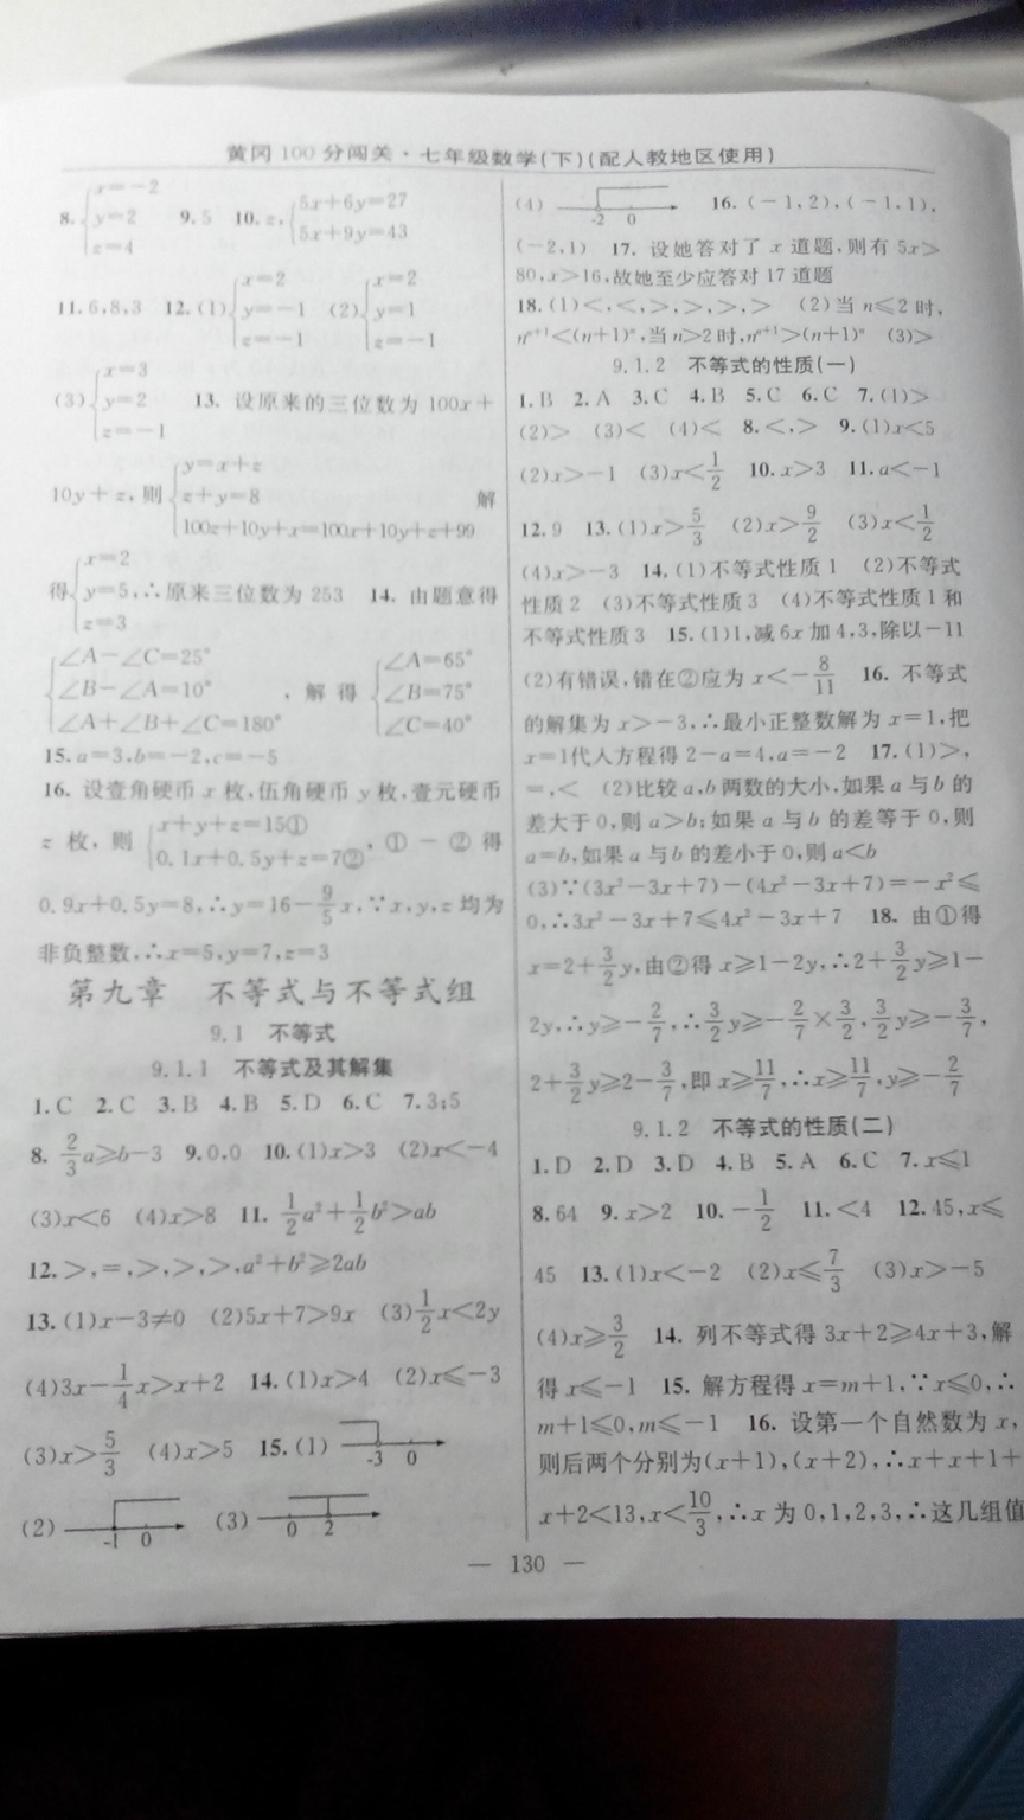 黄冈100分闯关·七年级数学(下)(配人教地区使用)
8.{x=-2 y=2 z=4 9.5 10.z,{5x+6y=27 5x+9y=43
11.6,8,3 12.(1){x=2 y=-1 z=-1 (2){x=2 y=1 z=-1
(3){x=3 y=2 z=-1 13. 设原来的三位数为 100x+
10y+z,则{y=x+z z+y=8 100z+10y+x=100x+10y+z+99 解
得{x=2 y=5 z=3,∴原来三位数为 253 14. 由题意得
{∠A-∠C=25° ∠B-∠A=10° ∠A+∠B+∠C=180°,解得{∠A=65° ∠B=75° ∠C=40°
15.a=3,b=-2,c=-5
16. 设壹角硬币 x 枚,伍角硬币 y 枚,壹元硬币
z 枚,则{x+y+z=15① 0.1x+0.5y+z=7②,①-②得
0.9x+0.5y=8,∴y=16-9/5x,∵x,y,z均为
非负整数,∴x=5,y=7,z=3
第九章 不等式与不等式组
9.1 不等式
9.1.1 不等式及其解集
1.C 2.C 3.B 4.B 5.D 6.C 7.3;5
8. 2/3a⩾b-3 9.0,0 10.(1)x>3 (2)x<-4
(3)x<6 (4)x>8 11. 1/2a²+1/2b²>ab
12.>,=,>,>,>,a²+b²⩾2ab
13.(1)x-3≠0 (2)5x+7>9x (3)1/2x<2y
(4)3x-1/4x>x+2 14.(1)x>4 (2)x⩽-3
(3)x>5/3 (4)x>5 15.(1) -3 0
(2) -1 0 (3) 0 2
(4) -2 0 16.(-1,2),(-1,1),
(-2,1) 17. 设她答对了 x 道题,则有 5x>
80,x>16,故她至少应答对 17 道题
18.(1)<,<,>,>,>,> (2)当 n⩽2 时,
nⁿ⁺¹<(n+1)ⁿ,当n>2时,nⁿ⁺¹>(n+1)ⁿ (3)>
9.1.2 不等式的性质(一)
1.B 2.A 3.C 4.B 5.C 6.C 7.(1)>
(2)> (3)< (4)< 8.<,> 9.(1)x<5
(2)x>-1 (3)x<1/2 10.x>3 11.a<-1
12.9 13.(1)x>5/3 (2)x>9/2 (3)x<1/2
(4)x>-3 14.(1)不等式性质 1 (2)不等式
性质 2 (3)不等式性质 3 (4)不等式性质 1 和
不等式性质 3 15.(1)1,减 6x 加 4,3,除以-11
(2)有错误,错在②应为 x<-8/11 16. 不等式
的解集为 x>-3,∴最小正整数解为 x=1,把
x=1代人方程得 2-a=4,a=-2 17.(1)>,
=,< (2)比较 a,b 两数的大小,如果 a 与 b 的
差大于 0,则 a>b;如果 a 与 b 的差等于 0,则
a=b,如果 a 与 b 的差小于 0,则 a<b
(3)∵(3x²-3x+7)-(4x²-3x+7)=-x²⩽
0,∴3x²-3x+7⩽4x²-3x+7 18. 由①得
x=2+3/2y,由②得 x⩾1-2y,∴2+3/2y⩾1-
2y,∴y⩾-2/7,∴3/2y⩾-2/7×3/2,3/2y⩾-3/7,
2+3/2y⩾2-3/7,即 x⩾11/7,∴x⩾11/7,y⩾-2/7
9.1.2 不等式的性质(二)
1.D 2.D 3.D 4.B 5.A 6.C 7.x⩽1
8.64 9.x>2 10.-1/2 11.<4 12.45,x⩽
45 13.(1)x<-2 (2)x⩽7/3 (3)x>-5
(4)x⩾3/2 14. 列不等式得 3x+2⩾4x+3,解
得 x⩽-1 15. 解方程得 x=m+1,∵x⩽0,∴
m+1⩽0,m⩽-1 16. 设第一个自然数为 x,
则后两个分别为(x+1),(x+2),∴x+x+1+
x+2<13,x<10/3,∴x 为 0,1,2,3,∴这几组值
— 130 —